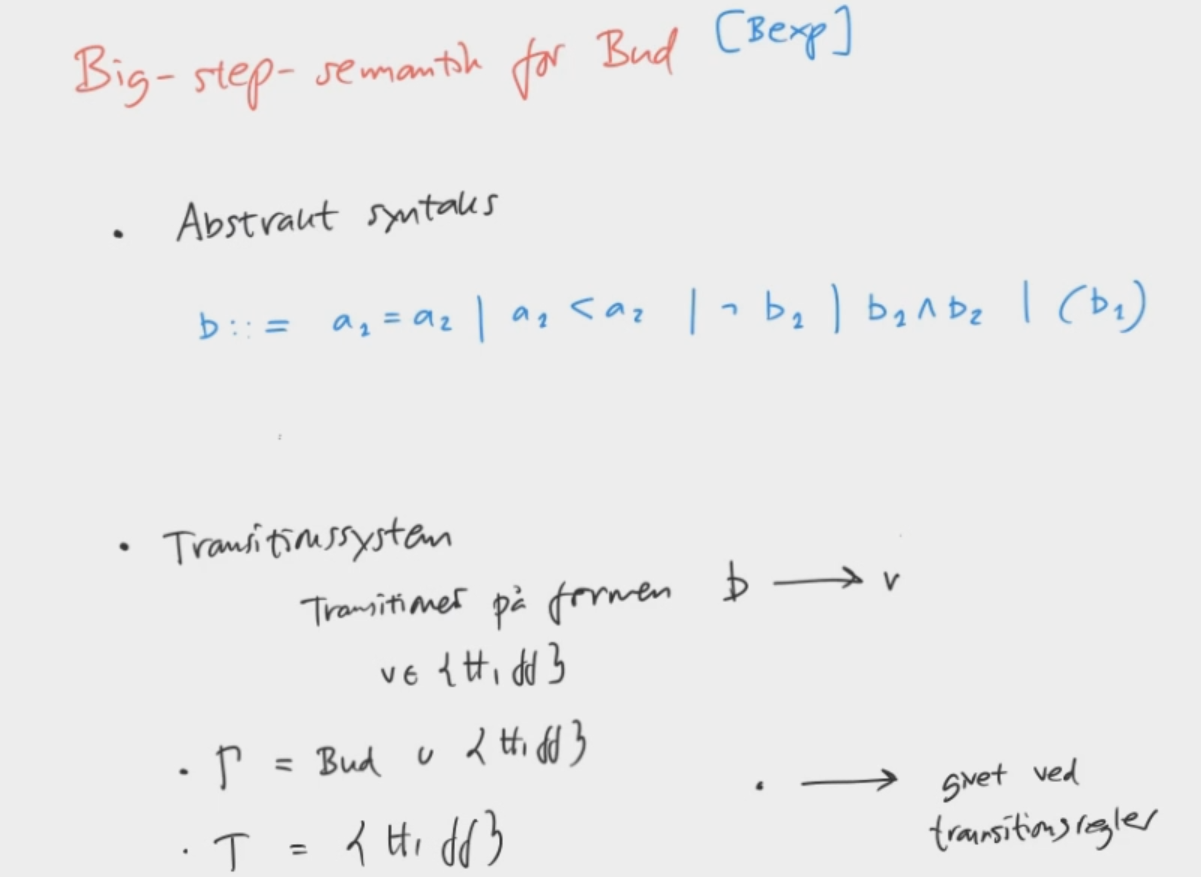 Big-step-semantik for Bud [Bexp]
• Abstrakt syntaks
b ::= a₁ = a₂ | a₁ < a₂ | ¬ b₁ | b₁ ∧ b₂ | (b₁)
• Transitionssystem
Transitioner på formen b → v
v ∈ {tt, ff}
• Γ = Bud ∪ {tt, ff}
• T = {tt, ff}
• → givet ved
transitionsregler